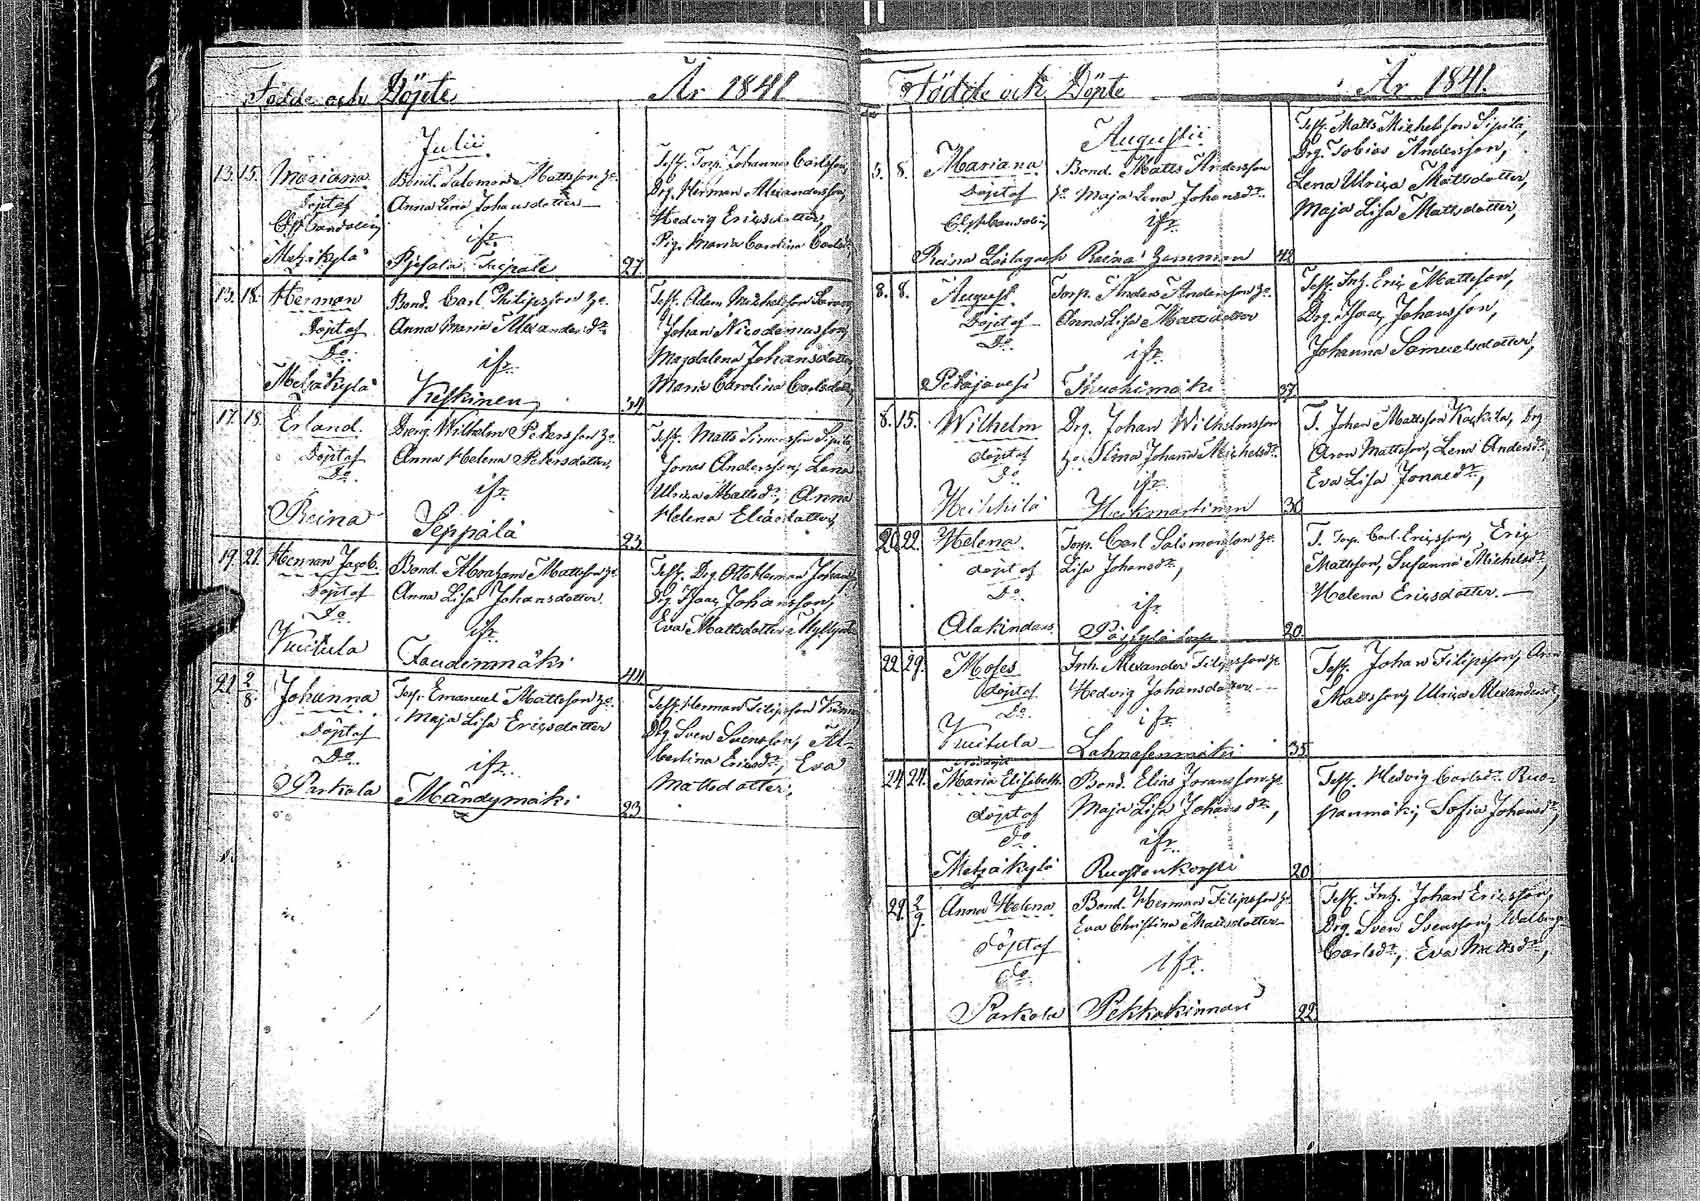 Födde och Döpte År 1841
Julii
13. 15. Mariana Bond. Salomon Mattsson &c.
Döpt af Anna Lena Johansdotter
ifr.
Metzäkylä 27
Test. Torp. Johannes Carlsson,
Drg. Herman Alexandersson,
Hedvig Ericsdotter,
Pig. Maria Carolina
13. 18. Herman Bond. Carl Philipsson &c.
Döpt af Anna Maria Alexandersdr.
Do. ifr.
Metzäkylä Keskinen 34
Test. Adam Michelsson
Johan Nicodemusson,
Magdalena Johansdotter,
Maria Carolina Carlsdotter,
17. 18. Erland. Dreng. Wilhelm Petersson &c.
Döpt af Anna Helena Petersdotter,
Do. ifr.
Reina Seppälä 23
Test. Matts Simonsson Sipilä
Jonas Andersson, Lena
Ulrica Mattsdr., Anna
Helena Eliaedotter,
19. 21. Herman Jacob. Bond. Abraham Mattsson &c.
Döpt af Anna Lisa Johansdotter.
Do. ifr.
Kuitula 44
Test. Drg. Otto Herman
Drg. Isaac Johansson,
Eva Mattsdotter
21. 2/8. Johanna Torp. Emanuel Mattsson &c.
Döpt af Maja Lisa Ericsdotter
Do. ifr.
Parkola Mändymäki 23
Test. Herman Filipsson
Drg. Sven Svensson, Al-
bertina Ericsdr., Eva
Mattsdotter,
Födde och Döpte År 1841.
Augustii
5. 8. Mariana Bond. Matts Andersson
Döpt af &c. Maja Lena Johansdr.
ifr.
Reina 42
Test. Matts Michelsson Sipilä,
Drg. Tobias Andersson,
Lena Ulrica Mattsdotter,
Maja Lisa Mattsdotter,
8. 8. August. Torp. Anders Andersson &c.
Döpt af Anna Lisa Mattsdotter
Do. ifr.
Petäjävesi 37
Test. Inh. Eric Mattsson,
Drg. Isaac Johansson,
Johanna Samuelsdotter,
8. 15. Wilhelm Drg. Johan Wilhelmsson
Döpt af &c. Stina Johanna Michelsdr.
Do. ifr.
Heikkilä Heikmartinen 30
T. Johan Mattsson Drg
Aron Mattsson, Lena Andersdr.
Eva Lisa Jonaedr.,
20. 22. Helena. Torp. Carl Salomonsson &c.
Döpt af Lisa Johansdr.,
Do. ifr.
Alakindaus 20
T. Torp. Carl Ericsson, Eric
Mattsson, Susanna Michelsdr.,
Helena Ericsdotter.
22. 29. Moses Inh. Alexander Filipsson &c
Döpt af Hedvig Johansdotter
Do. ifr.
Kuitula Lahnasenmäki 35
Test. Johan Filipsson,
Mattsson, Ulrica Alexandersdr.,
24. 24. Maria Elisabeth. Bond. Elias Joransson &c.
Döpt af Maja Lisa Johansdr.,
Do. ifr.
Metzäkylä Ruostenkorpi 20
Test. Hedvig Carlsdr. Ruo-
panmäki, Sofia Johansdr.,
29. 2/9. Anna Helena Bond. Herman Filipsson &c.
Döpt af Eva Christina Mattsdotter
Do. ifr.
Parkola Pekkakinnari 22
Test. Inh. Johan Ericsson,
Drg. Sven Svensson, Walborg
Carlsdr., Eva Mattsdr.,